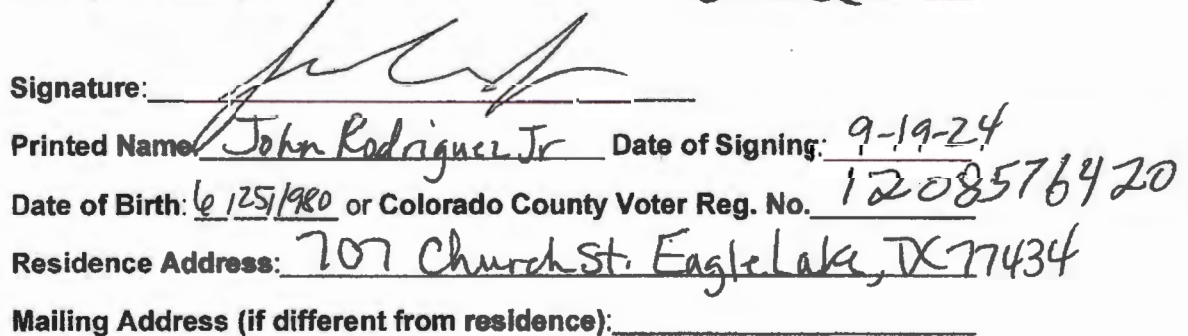 Signature:
Printed Name John Rodriguez Jr Date of Signing: 9-19-24
Date of Birth: 6/25/1980 or Colorado County Voter Reg. No. 1208576420
Residence Address: 707 Church St. Eagle Lake, TX 77434
Mailing Address (if different from residence):